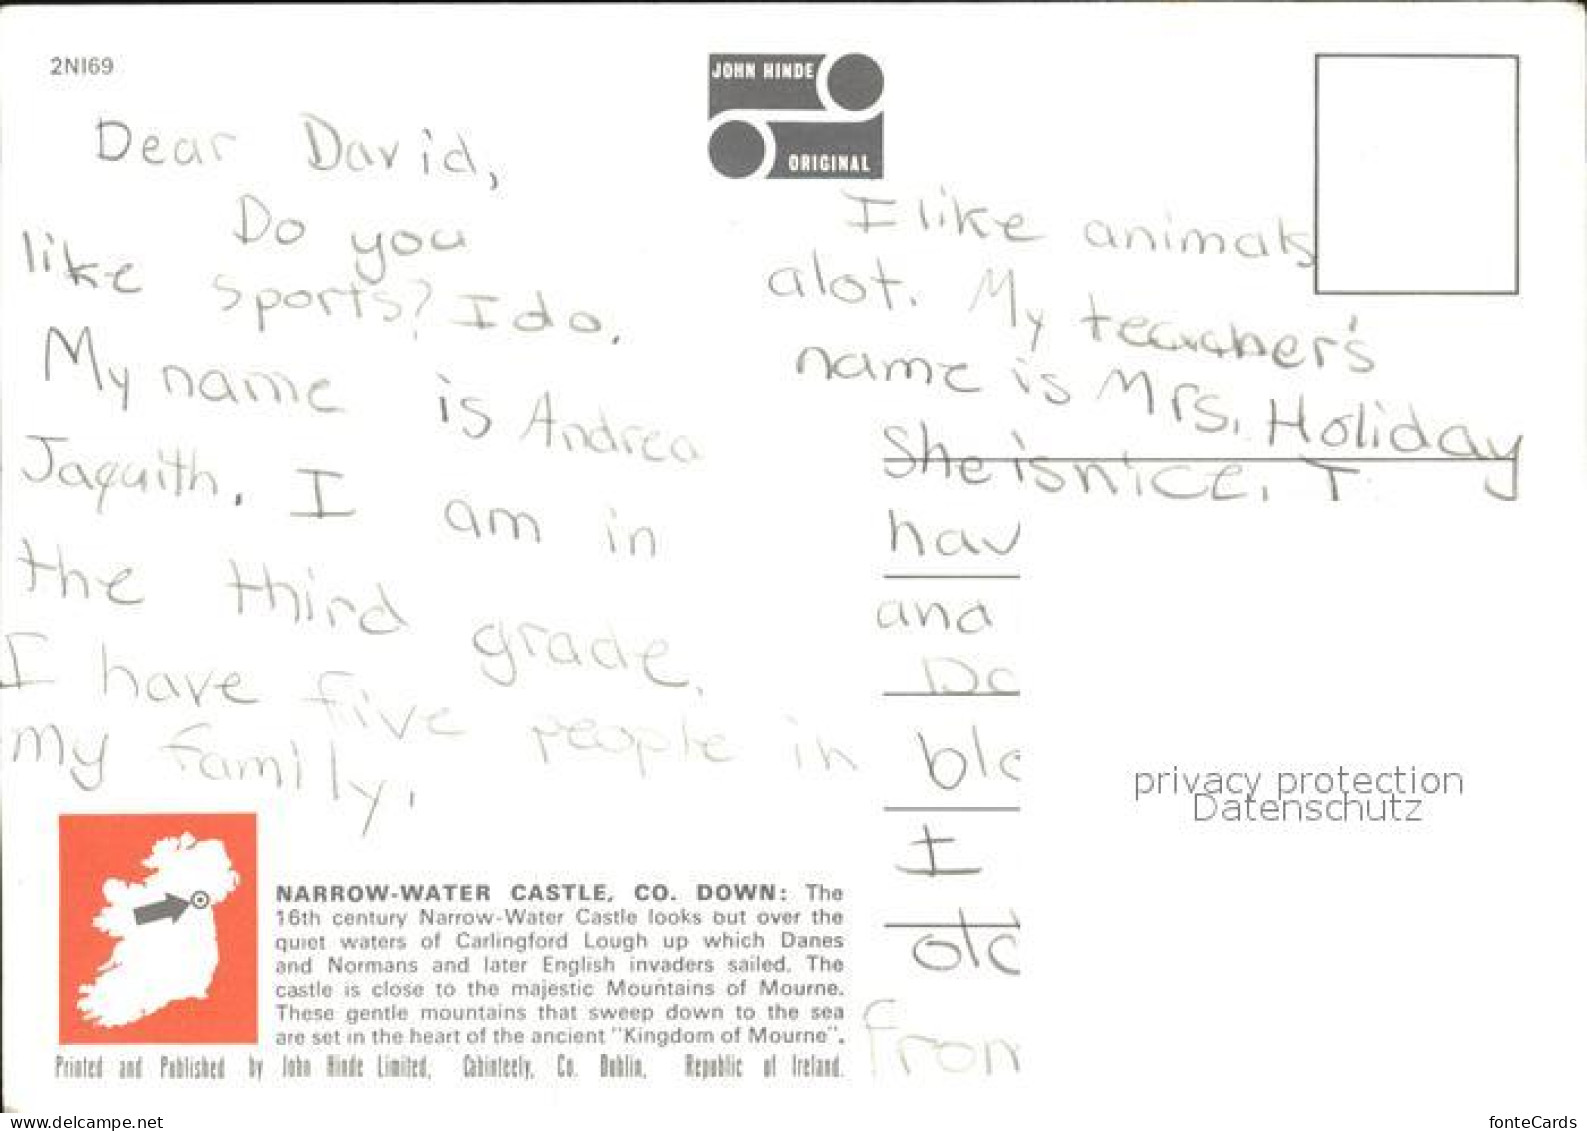 2NI69
JOHN HINDE
ORIGINAL
Dear David,
Do you
like sports? I do.
My name is Andrea
Jaquith. I am in
the third grade.
I have five people in
my family.
I like animals
alot. My teacher's
name is Mrs. Holiday
She is nice. I
hav
and
Do
blo
I
old
from
NARROW-WATER CASTLE, CO. DOWN: The
16th century Narrow-Water Castle looks out over the
quiet waters of Carlingford Lough up which Danes
and Normans and later English invaders sailed. The
castle is close to the majestic Mountains of Mourne.
These gentle mountains that sweep down to the sea
are set in the heart of the ancient "Kingdom of Mourne".
Printed and Published by John Hinde Limited, Cabinteely, Co. Dublin, Republic of Ireland.
privacy protection
Datenschutz
www.delcampe.net
fonteCards